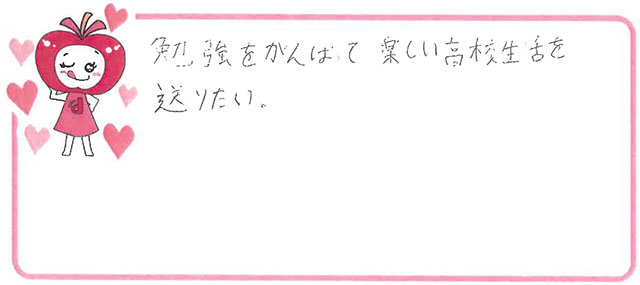 勉強をがんばって楽しい高校生活を
送りたい。